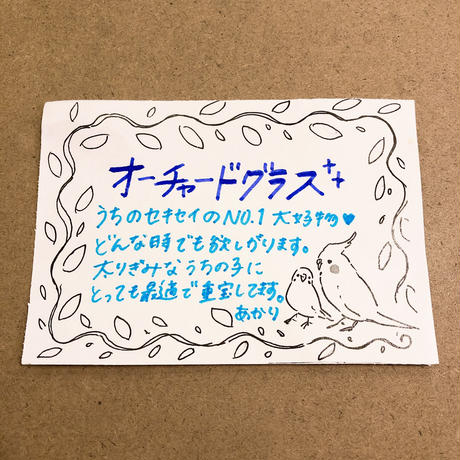 オーチャードグラス
うちのセキセイのNO.1 大好物♥
どんな時でも欲しがります。
太りぎみなうちの子に
とっても最適で重宝してます。
あかり